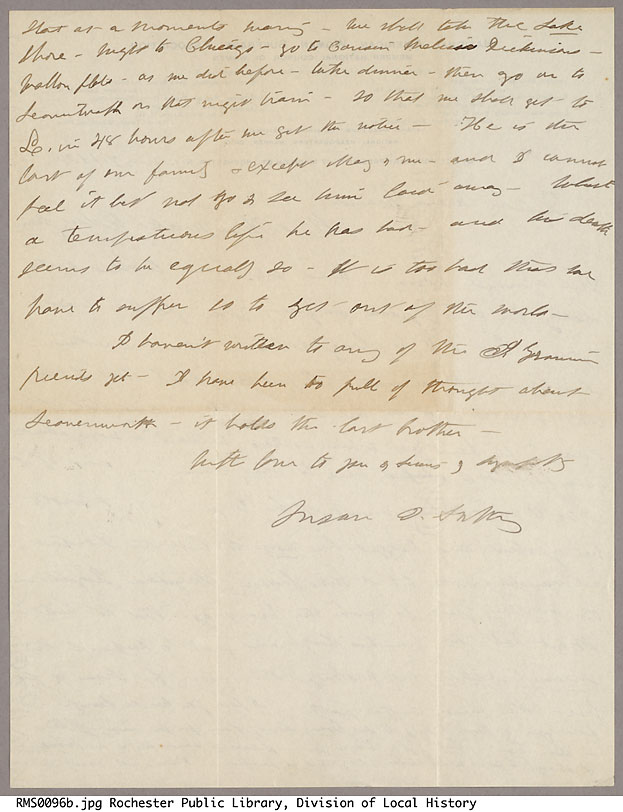 start at a moments warning – we shall take the Lake
Shore – night to Chicago – go to Cousin Melissa Dickinsons –
Walton place – as we did before – take dinner – then go on to
Leavenworth on that night train – so that we shall get to
L. in 48 hours after we get the notice – He is the
last of our family – except Mary & me – and I cannot
feel it but not go & see him laid away – What
a tempestuous life he has had – and his death
seems to be equally so – It is too bad that we
have to suffer so to get out of the world –
I haven't written to any of the friends
yet – I have been too full of thought about
Leavenworth – it holds the last brother –
With love to you
Susan B. Anthony
RMS0096b.jpg Rochester Public Library, Division of Local History